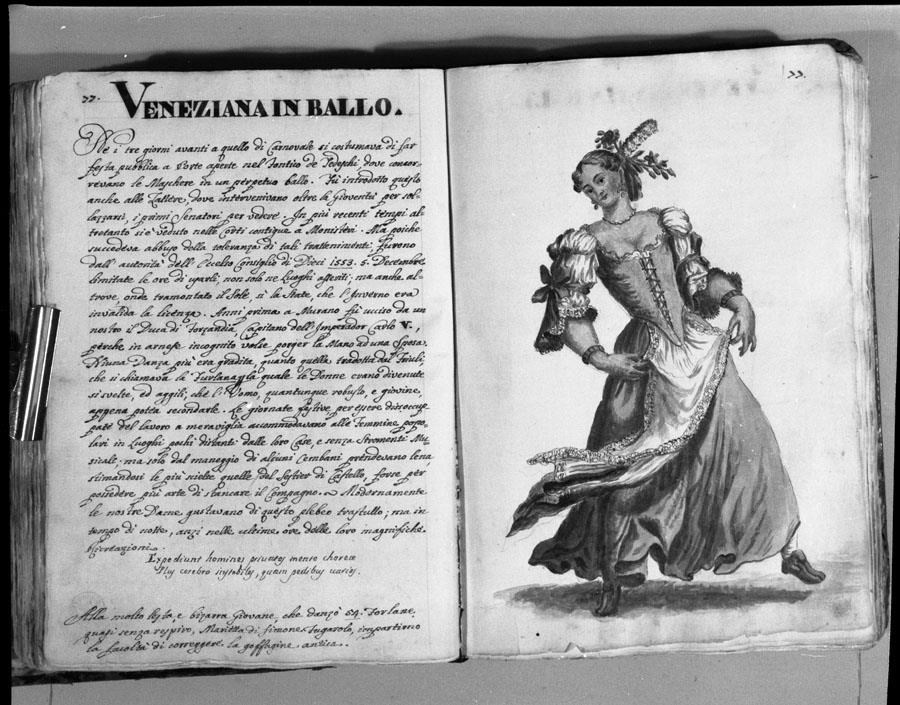 77.
VENEZIANA IN BALLO.
Ne i tre giorni avanti a quello di Carnovale si costumava di far
festa pubblica a Porte aperte nel Fontico de Tedeschi dove concor-
revano le Maschere in un perpetuo ballo. Fù introdotto questo
anche alle Zattere, dove intervenivano oltre la Gioventù per sol-
lazzarsi, i primi Senatori per vedere. In più recenti tempi al-
tretanto si è veduto nelle Corti contigue a Monisteri. Ma poiche
succedeva abbuso della toleranza di tali trattenimenti furono
dall' autorità dell' Eccelso Consiglio di Dieci 1553. 5. Decembre
limitate le ore di usarli, non solo ne Luoghi asseriti; ma anche al-
trove, onde tramontato il Sole, sì la State, che l'Inverno era
invalida la licenza. Anni prima a Murano fù ucciso da un
nostro il Duca di Capitano dell' Imperador Carlo V.,
perche in arnese incognito volse porger la Mano ad una Sposa.
Niuna Danza più era gradita, quanto quella tradotta dal Friuli,
che si chiamava la Furlana; la quale le Donne erano divenute
sì svelte, ed aggili, che l'Uomo, quantunque robusto, e giovine,
appena potea secondarle. Le giornate festive per essere disoccu-
pate del lavoro a meraviglia accommodavano alle Femmine popo-
lari in Luoghi pochi distanti dalle loro Case, e senza Stromenti Mu-
sicali: ma solo dal maneggio di alcuni Cembani prendevano lena
stimandosi le più scielte quelle del Sestier di Castello, forse per
possedere più arte di stancare il Compagno. Modernamente
le nostre Dame gustavano di questo plebeo trastullo; ma in
tempo di notte, anzi nelle ultime ore delle loro magnifiche
Ricreazioni.
Expediunt homines privatos mente choreæ
Plus cerebro instabiles, quam pedibus varios.
Alla molto lesta, e bizarra Giovane, che danzò 54. Forlane
quasi senza respiro, Marietta di Simone Fugarola, impartirno
la facoltà di correggere la goffagine antica.
33.